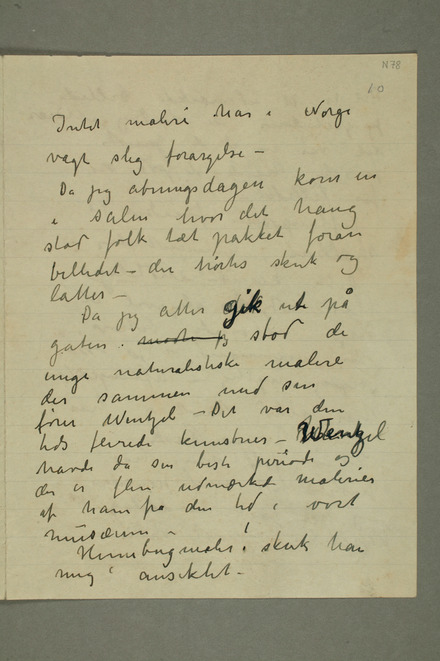 N 78
10
Intet maleri har i Norge
vagt slig forargelse –
Da jeg åbningsdagen kom ind
i salen hvor det hang
stod folk tæt pakket foran
billedet – der hørtes skrik og
latter –
Da jeg atter gik ute på
gaten. stod de
unge naturalistiske malere
der sammen med sin
fører Wentzel – Det var den
tids feirede kunstner – Wentzel
havde da sin beste periode og
der er flere udmærkede malerier
af ham fra den tid i vort
musæum –
Humbugmaler! skrek han
mig i ansiktet –